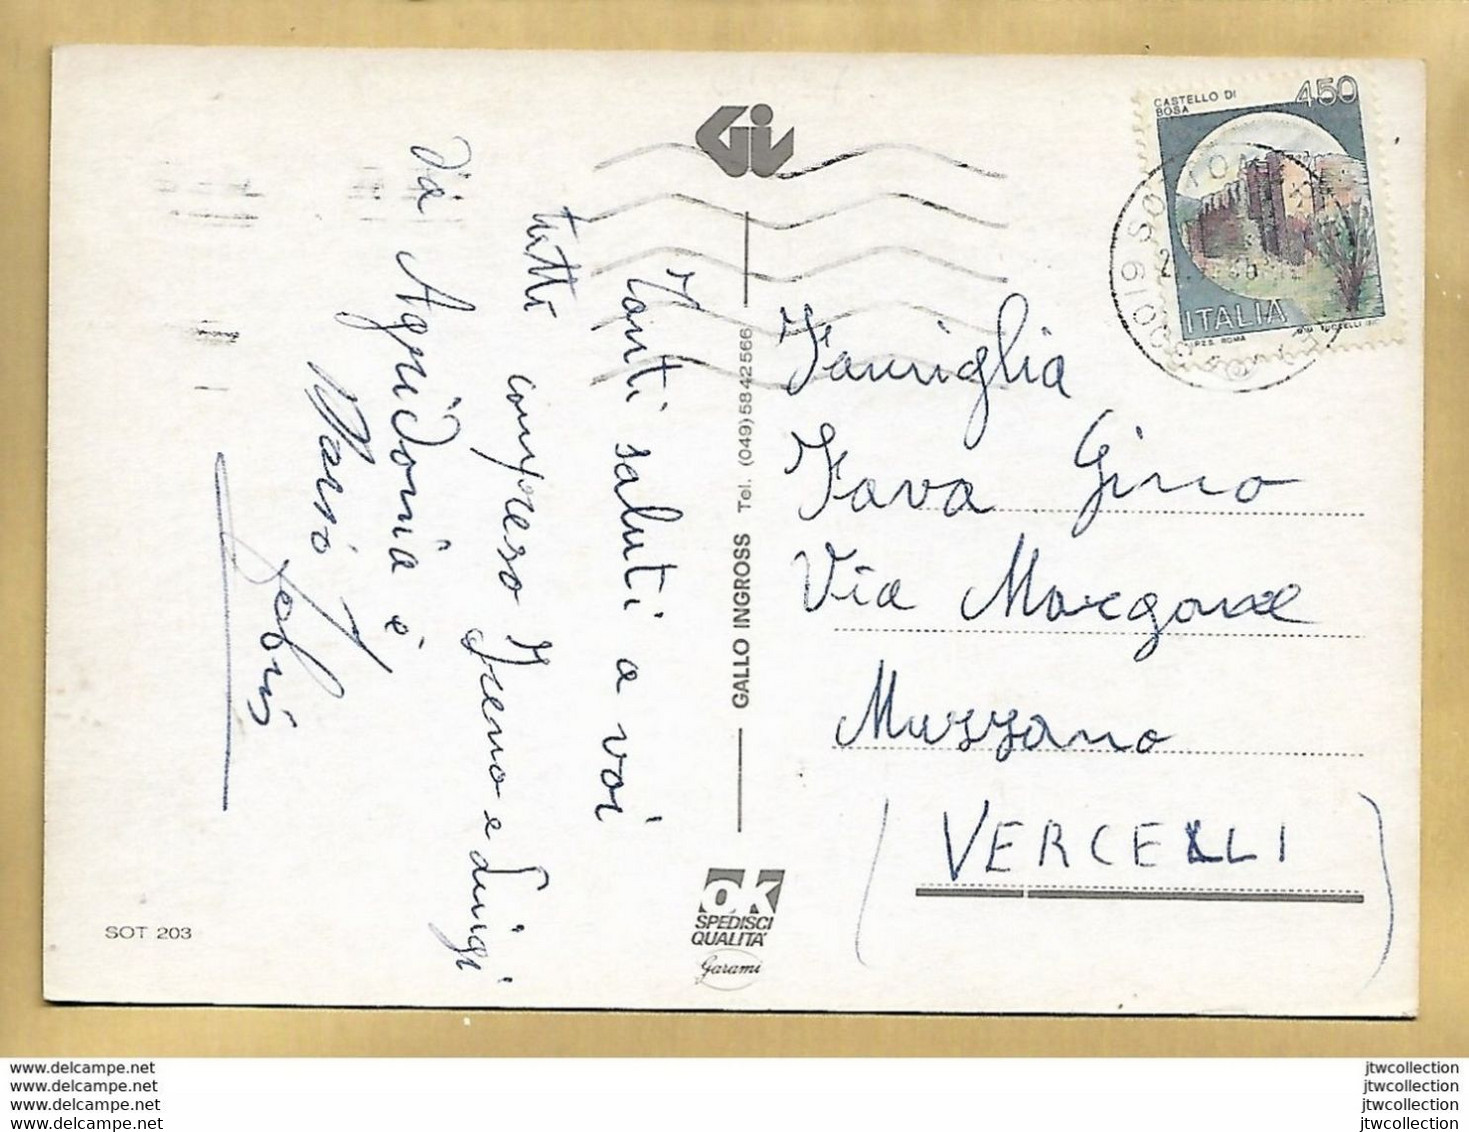 Tanti saluti a voi
tutti compreso Ireno e Luigi
da Agridonia e
Mario
Famiglia
Fava Gino
Via Margone
Muzzano
(VERCELLI)
CASTELLO DI
BOSA
450
ITALIA
I.P.Z.S. ROMA
Gi
GALLO INGROSS Tel. (049) 5842566
OK
SPEDISCI
QUALITA'
Garami
SOT 203
www.delcampe.net
www.delcampe.net
www.delcampe.net
www.delcampe.net
jtwcollection
jtwcollection
jtwcollection
jtwcollection